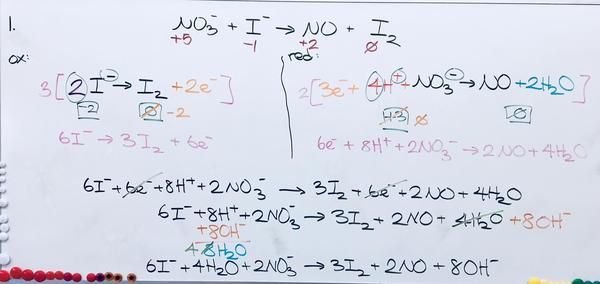 1. NO₃⁻ + I⁻ → NO + I₂
+5 -1 +2 0
ox: red:
3[2I⁻ → I₂ + 2e⁻] 2[3e⁻ + 4H⁺ + NO₃⁻ → NO + 2H₂O]
-2 0 -2 +3 0 0
6I⁻ → 3I₂ + 6e⁻ 6e⁻ + 8H⁺ + 2NO₃⁻ → 2NO + 4H₂O
6I⁻ + 6e⁻ + 8H⁺ + 2NO₃⁻ → 3I₂ + 6e⁻ + 2NO + 4H₂O
6I⁻ + 8H⁺ + 2NO₃⁻ → 3I₂ + 2NO + 4H₂O + 8OH⁻
+8OH⁻
4 8H₂O
6I⁻ + 4H₂O + 2NO₃⁻ → 3I₂ + 2NO + 8OH⁻